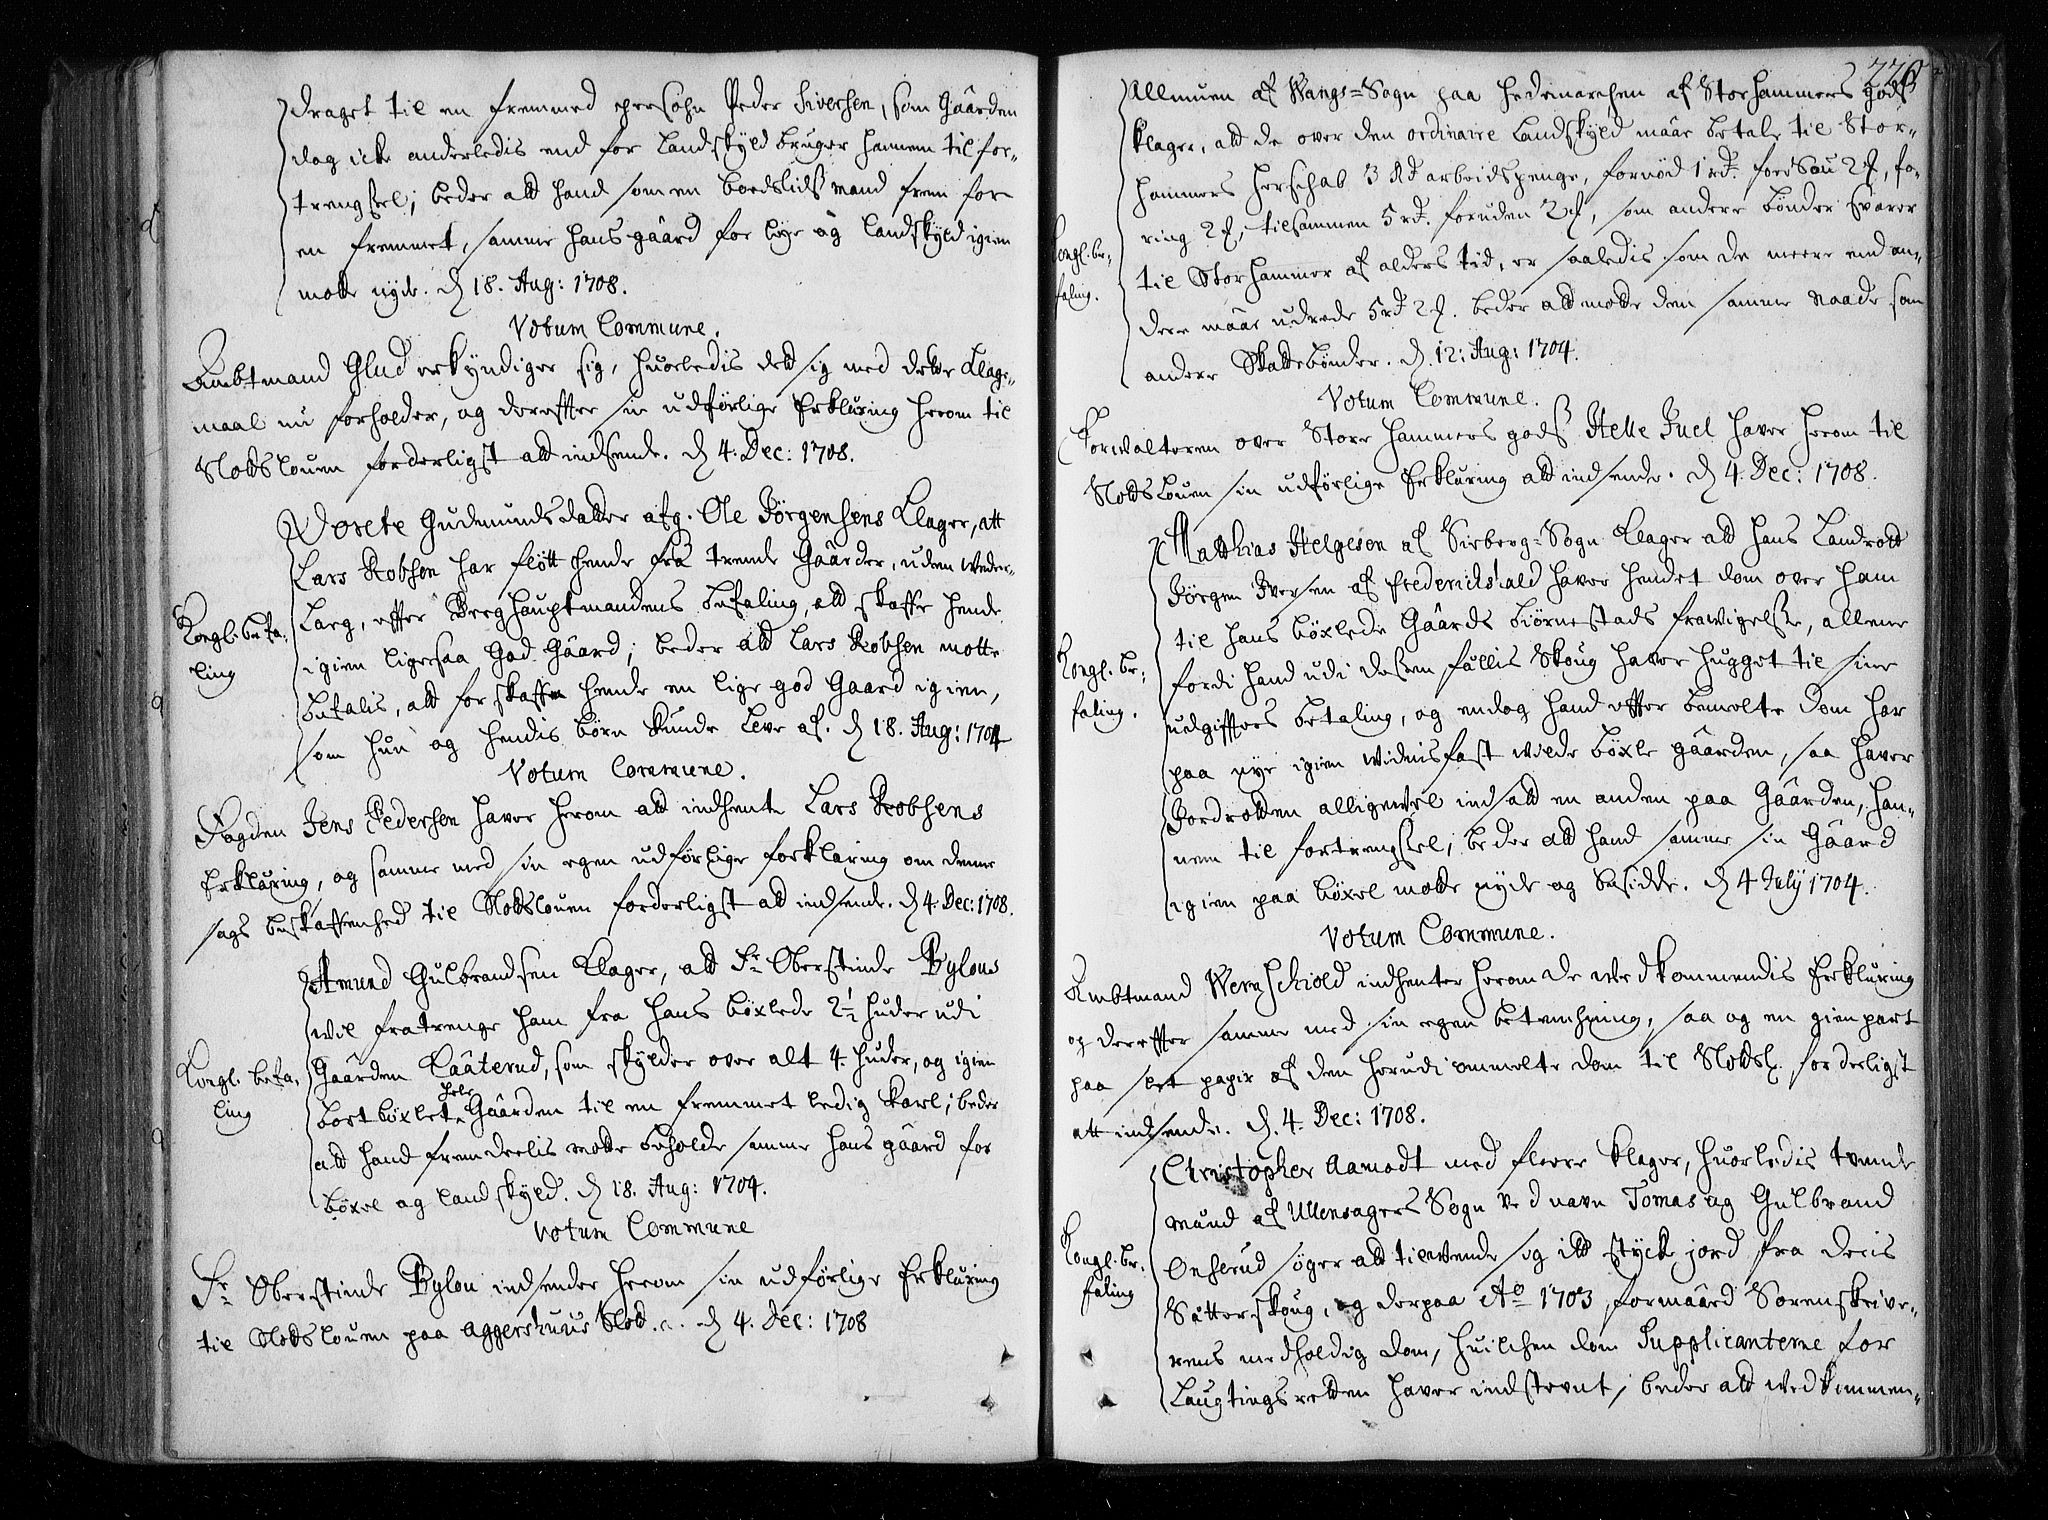 draget til en fremmed person Peder Siversen, som Gaarden
dog icke anderledis end for Landskyld bruger hannem til for-
trengsel; beder att hand som en boedslids mand frem for
en fremmet, samme hans gaard for løye og landskyld igien
motte nyde. d 18. Aug: 1708.
Votum Commune.
Ambtmand Glud erkyndiger sig, huorledis det sig med dette Klage-
maal nu forholder, og dereffter sin udførlige Erklæring herom til
Slotslouen forderligst att indsende. d 4. Dec: 1708.
Dorete Gudmundsdatter afg. Ole Jørgensens Klager, att
Lars Robsen har fløtt hende fra trende Gaarder, uden weder-
Kongl. befa-
ling
lag, effter Berghauptmandens befaling, att skaffe hende
igien ligesaa God Gaard; beder att Lars Robsen motte
befalis, att forskaffe hende en lige god Gaard igien,
som hun og hendis børn kunde leve af. d 18. Aug: 1704
Votum Commune.
Fogden Jens Pedersen haver herom att indhente Lars Robsens
Erklæring, og samme med sin egen udførlige forklaring om denne
sags beskaffenhed til Slotslouen forderligst att indsende. d 4. Dec: 1708.
Amund Gulbrandsen Klager, att Fr. Oberstinde Bylous
wil fratrenge ham fra hans bøxlede 2½ huder udi
Kongl. befa-
ling
Gaarden Raaterud, som skylder over alt 4. huder, og igien
bortbøxlet hele Gaarden til en fremmet ledig Karl; beder
att hand fremdeelis motte beholde samme hans gaard for
bøxel og landskyld. d 18. Aug: 1704.
Votum Commune
Fr. Oberstinde Bylou indsender herom sin udførlige Erklæring
til Slotslouen paa Aggershuus Slot. d 4. Dec: 1708
226
Allmuen af Wangs-Sogn paa Hedemarchen af Storhammers gods
Klager, att de over den ordinaire Landskyld maae betale til Stor-
hammers Herschab 3 Rd arbeidspenge, fornød 1 rd. foer Sou 2 ß, fo-
ring 2 ß, tilsammen 5 rd. foruden 2 ß, som andere bønder svarer
Kongl. be-
faling.
til Storhammer af alders tid, er saaledis som de meere end an-
dere maae udrede 5 rd 2 ß. beder att motte dem samme naade som
andere Skattebønder. d. 12: Aug: 1704.
Votum Commune.
Forwalteren over Store hammers gods Helle Juel haver herom til
Slotslouen sin udførlige Erklæring att indsende. d 4. Dec: 1708.
Matthias Helgesen af Sieberg-Sogn Klager att hans Landrott
Jørgen Iversen af Frederichshald haver hendet dom over ham
til hans bøxlede Gaards Biørnestads frawigelse, allene
Kongl. be-
faling.
fordi hand udi dessen fellis Skoug haver hugget til sine
udgiffters betaling, og endog hand effter bemelte dom har
paa nye igien widnisfast wilde bøxle gaarden, saa haver
Jordrotten alligewel indsatt en anden paa Gaarden, han-
nem til fortrengsel; beder att hand samme sin Gaard
igien paa bøxel motte nyde og besidde. d 4 July 1704.
Votum Commune.
Ambtmand Wernschiold indhenter herom de wedkommendis Erklæring
og dereffter samme med sin egen betenchning, saa og en gienpart
paa slet papir af den herudi ommelte dom til Slotsl. forderligst
att indsende. d. 4. Dec: 1708.
Christopher Aamodt med fleere Klager, huorledis tvende
mænd af Ullensagers Sogn ved navn Tomas og Gulbrand
Kongl. be-
faling
Onsrud søger att tilwende sig itt styck jord fra deris
Sætterskoug, og derpaa Ao 1703 formaard Sorenskrive-
rens medholdig dom, huilchen dom Supplicanterne for
Laugtingsretten haver indstevnt; beder att wedkommen-